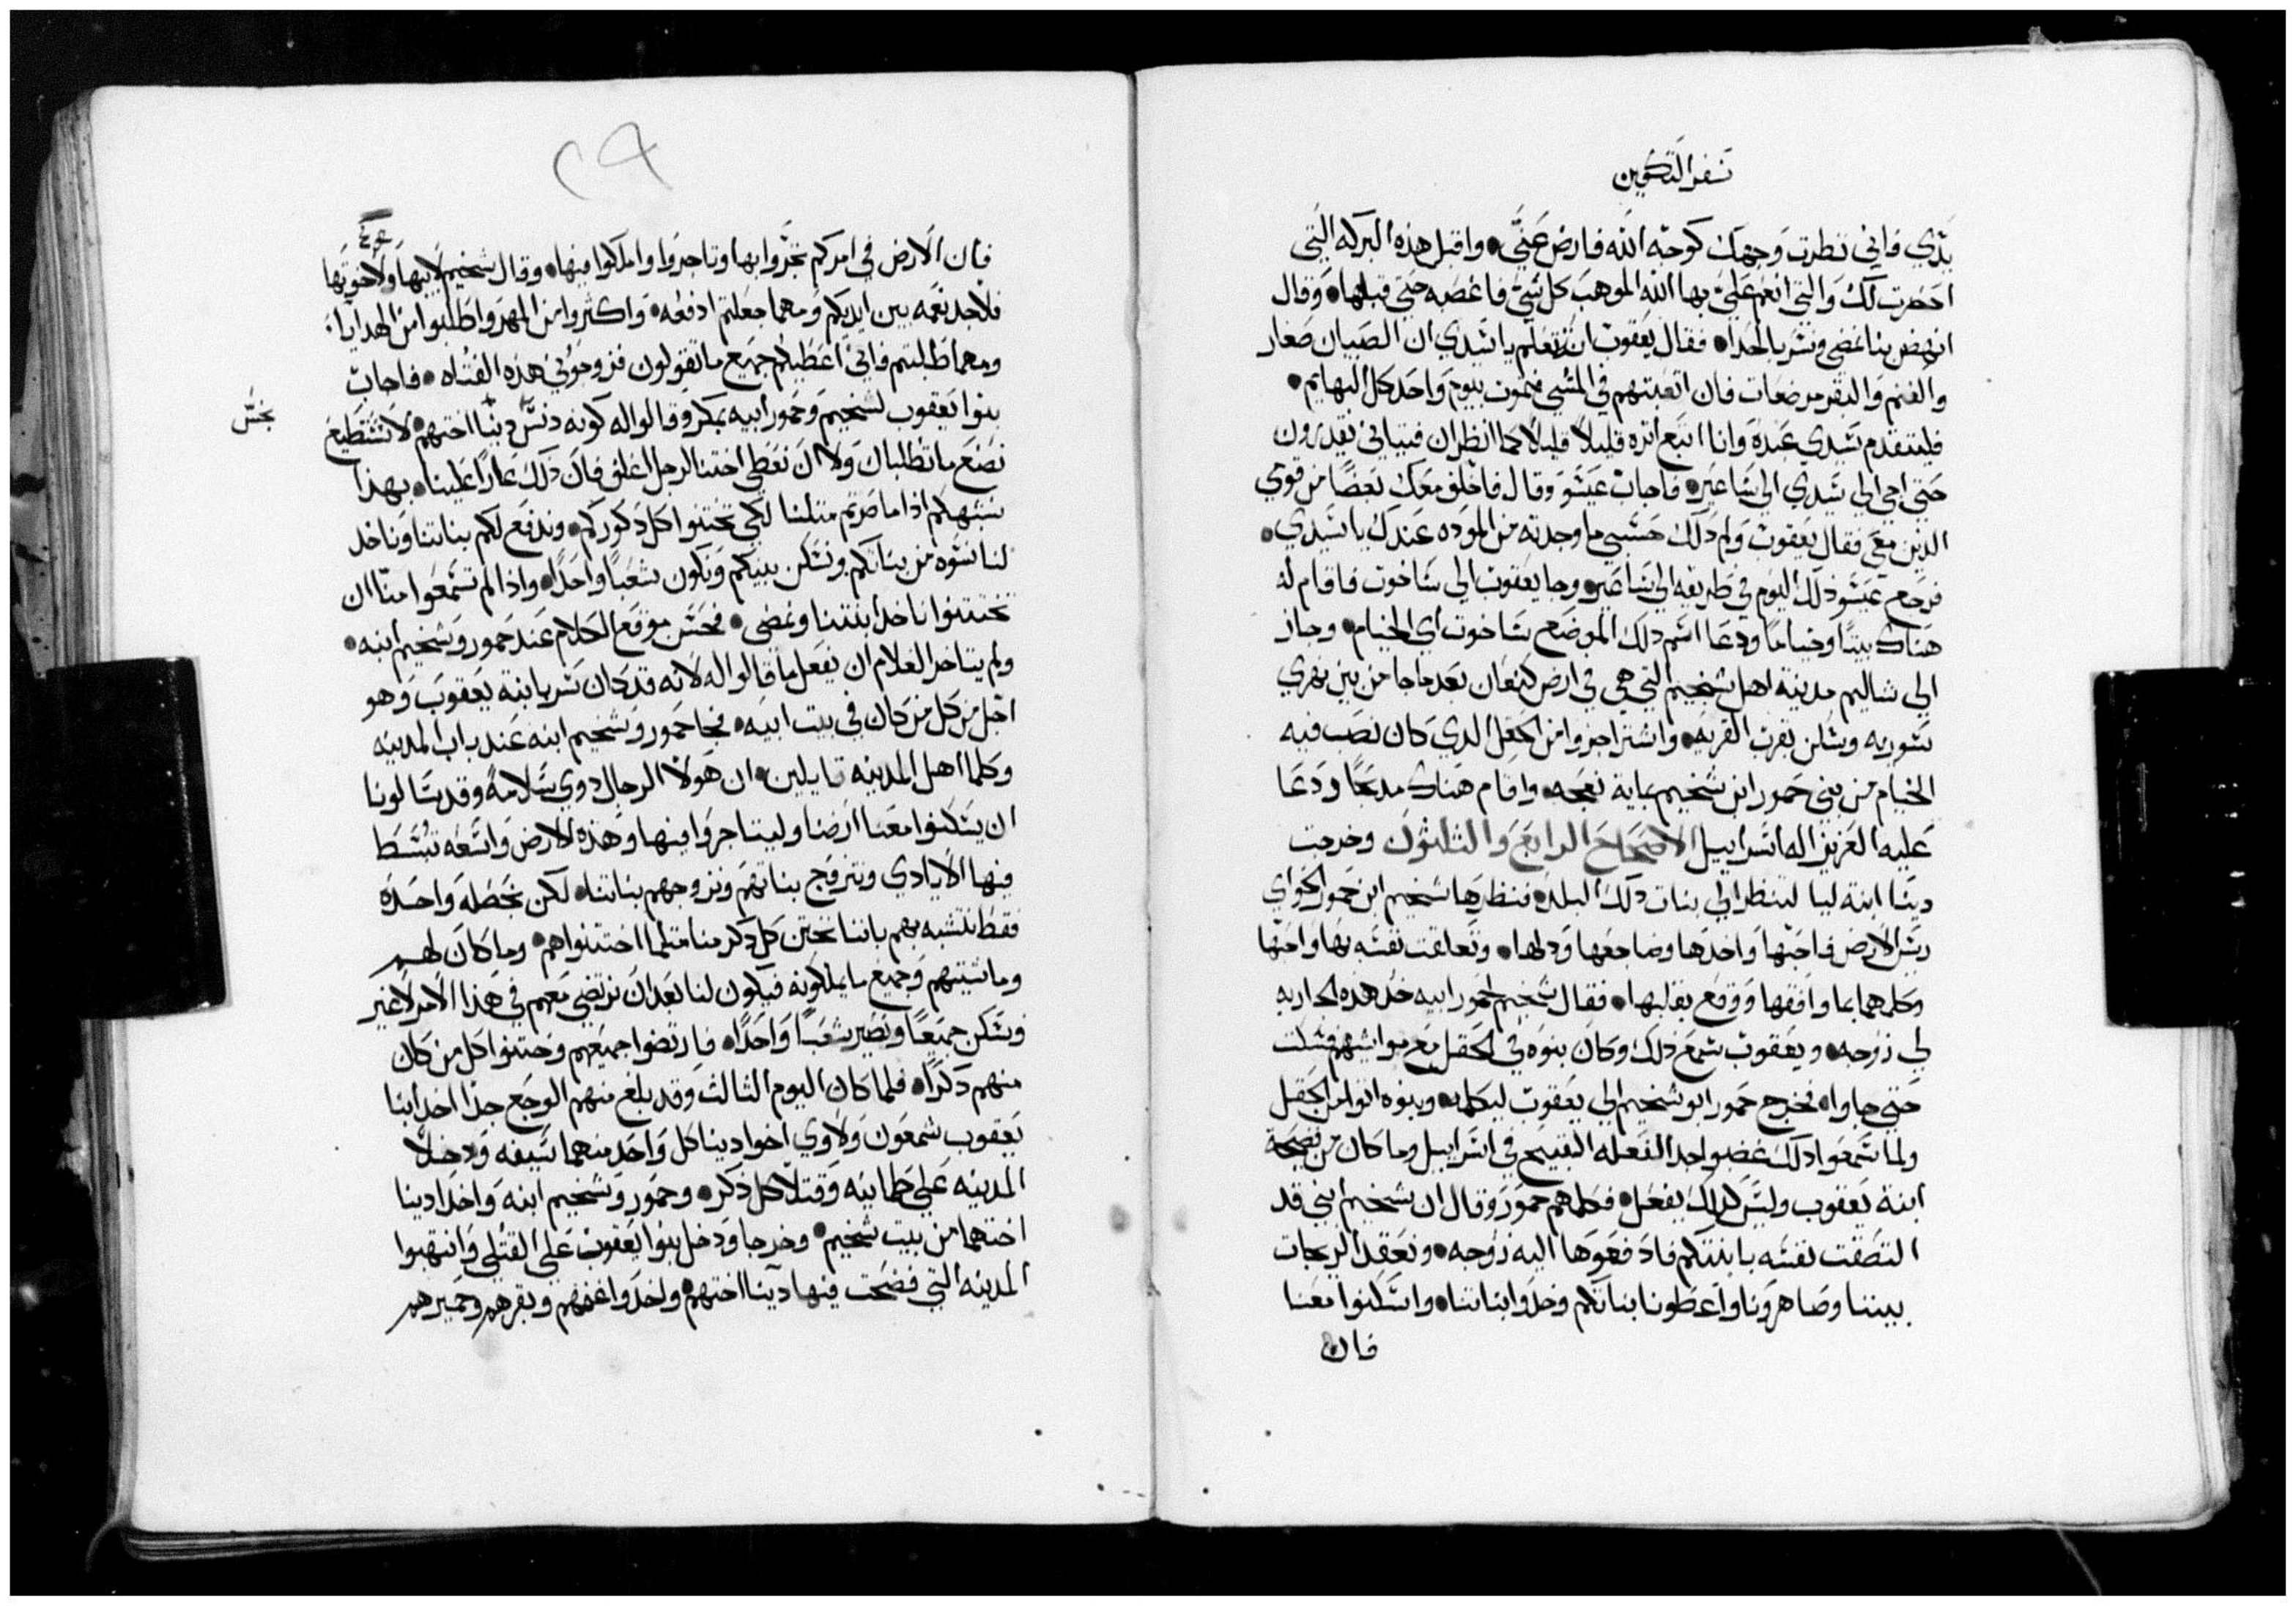 سفر التكوين
يدي فاني نظرت وجهك كوجه الله فارض عني • واقبل هذه البركه التي
احضرت لك والتي انعم علي بها الله الموهب كل شي فاغصبه حتي قبلها • وقال
انهض بنا نمضي ونسر بالحدا • فقال يعقوب انت تعلم يا سيدي ان الصبيان صغار
والغنم والبقر مرضعات فان اتعبتهم في المشي فتموت بيوم واحد كل البهايم •
فليتقدم سيدي عبده وانا اتبع اثره قليلا قليلا كما انظر ان فتياني يقدرون
حتي اجي الي سيدي الي ساعير • فاجاب عيسو وقال فاخلف معك بعضا من قومي
الذين معي فقال يعقوب ولم ذلك حسبي ما وجدته من الموده عندك يا سيدي •
فرجع عيسو ذلك اليوم في طريقه الي ساعير • وجا يعقوب الي ساخوت فاقام له
هناك بيتا وخياما ودعا اسم ذلك الموضع ساخوت اي الخيام • وجاز
الي شاليم مدينة اهل شخيم التي هي في ارض كنعان بعد ما جا من بين نهري
سوريه وسكن بقرب القريه • واشترا جزوا من الحقل الدي كان نصب فيه
الخيام من بني حمور ابن شخيم بماية نعجه • واقام هناك مدبحا ودعا
عليه العزيز اله اسراييل الاصحاح الرابع والثلثون وخرجت
دينا ابنة ليا لتنظر الي بنات ذلك البلد • فنظرها شخيم ابن حمور الحواي
ريس الارض فاحبها واخدها وضاجعها ودلها • وتعلقت نفسه بها واحبها
وكلمها بما وافقها ووقع بقلبها • فقال شخيم لحمور ابيه خد هذه الجاريه
لي زوجه • ويعقوب سمع ذلك وكان بنوه في الحقل مع مواشيهم فسكت
حتي جاوا • فخرج حمور ابو شخيم الي يعقوب ليكلمه • وبنوه اتوا من الحقل
ولما سمعوا ذلك غضبوا جدا لفعله القبيح في اسراييل وما كان من فضيحة
ابنة يعقوب وليس كذلك يفعل • فكلمهم حمور وقال ان شخيم ابني قد
التصقت نفسه بابنتكم فادفعوها اليه زوجه • ونعقد الريجات
بيننا وصاهرونا واعطونا بناتكم وخدوا بناتنا • واسكنوا معنا
فان
٢٩
فان الارض في امركم تجروا بها وتاجروا واملكوا فيها • وقال شخيم لابيها ولاخوتها
فلاجد نعمه بين ايديكم ومهما جعلتم ادفعه • واكثروا من المهر واطلبوا من الهدايا •
ومهما طلبتم فاني اعطيكم جميع ما تقولون فزوجوني هذه الفتاه • فاجاب
بنوا يعقوب لشخيم وحمور ابيه بمكر وقالوا له كونه دنس دينا اختهم • لا نستطيع
نجس
نصنع ما تطلبان ولا ان نعطي اختنا لرجل اغلف فان ذلك عارا علينا • بهذا
نشبهكم اذا ما صرتم مثلنا لكي تختتنوا كل دكوركم • وندفع لكم بناتنا وناخد
لنا نسوه من بناتكم ونسكن بينكم ونكون شعبا واحدا • واذا لم تسمعوا منا ان
تختتنوا ناخد ابنتنا ونمضي • فحسن موقع الكلام عند حمور وشخيم ابنه •
ولم يتاخر الغلام ان يفعل ما قالوا له لانه قد كان سر بابنة يعقوب وهو
اجل من كل من كان في بيت ابيه • فجا حمور وشخيم ابنه عند باب المدينه
وكلما اهل المدينه قايلين • ان هولا الرجال دوي سلامة وقد سالونا
ان يسكنوا معنا ارضنا وليتاجروا فيها وهذه الارض واسعه تبسط
فيها الايادي ونتزوج بناتهم ونزوجهم بناتنا • لكن بخصله واحده
فقط نتشبه بهم باننا نختن كل دكر منا مثلما اختتنوا هم • وما كان لهم
وماشيتهم وجميع ما يملكونه فيكون لنا بعد ان نرتضي معهم في هذا الامر لا غير
ونسكن جميعا ونصير شعبا واحدا • فارتضوا جميعهم وختنوا كل من كان
منهم دكرا • فلما كان اليوم الثالث وقد بلغ منهم الوجع جدا اخد ابنا
يعقوب شمعون ولاوي اخوا دينا كل واحد منهما سيفه ودخلا
المدينه علي طمانينه وقتلا كل ذكر • وحمور وشخيم ابنه واخدا دينا
اختهما من بيت شخيم • وخرجا ودخل بنوا يعقوب علي القتلي وانتهبوا
المدينه التي فضحت فيها دينا اختهم • واخدوا غنمهم وبقرهم وحميرهم